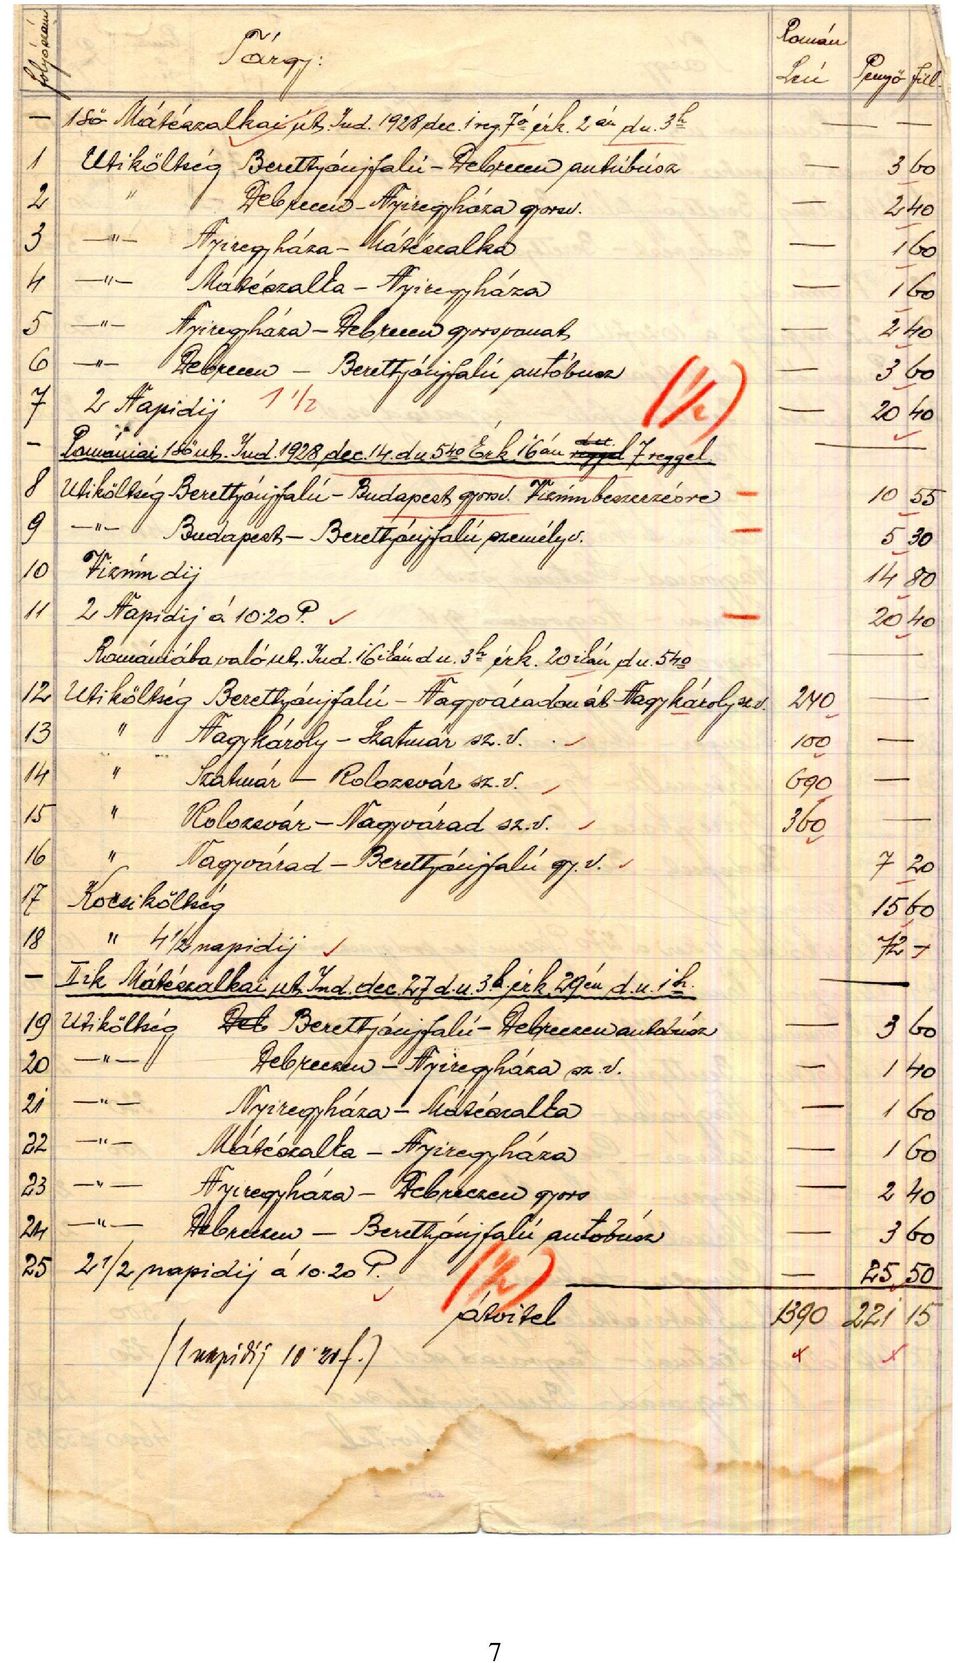 folyószám Tárgy: Román Leú Pengő fil.
— 1ső Mátészalkai út. Ind. 1928 dec. 1 reg. 7ó érk. 2án du. 3h — —
1 Utiköltség Berettyóujfalú – Debrecen autóbúsz — 3 60
2 " Debrecen – Nyiregyháza gyorsv. — 2 40
3 —"— Nyiregyháza – Mátészalka — 1 60
4 —"— Mátészalka – Nyiregyháza — 1 60
5 —"— Nyiregyháza – Debrecen gyorsvonat — 2 40
6 —"— Debrecen – Berettyóujfalú autóbusz — 3 60
7 2 Napidij 1 1/2 (1/2) — 20 40
— Romániai 1ső út. Ind. 1928 dec. 14. du 5 40 Érk 16án reggel 7 reggel. —
8 Utiköltség Berettyóujfalú – Budapest gyorsv. Vizúm beszerzésre — 10 55
9 —"— Budapest – Berettyóujfalú személyv. — 5 30
10 Vizúm dij 14 80
11 2 Napidij á 10·20 P. — 20 40
Romániába való út. Ind. 16ikán du. 3h érk. 20ikán du. 5 40 — —
12 Utiköltség Berettyóujfalú – Nagyváradon át Nagykároly sz.v. 240 —
13 " Nagykároly – Szatmár sz.v. 100 —
14 " Szatmár – Kolozsvár sz.v. 690 —
15 " Kolozsvár – Nagyvárad sz.v. 360 —
16 " Nagyvárad – Berettyóujfalú gy.v. 7 20
17 Kocsiköltség 15 60
18 " 4 1/2 napidij 72 –
— II ik Mátészalkai út. Ind. dec. 27 d.u. 3h érk. 29én d.u. 1h. —
19 Utiköltség Deb Berettyóujfalú – Debreczen autobúsz — 3 60
20 —"— Debreczen – Nyiregyháza sz.v. — 1 40
21 —"— Nyiregyháza – Mátészalka — 1 60
22 —"— Mátészalka – Nyiregyháza — 1 60
23 —"— Nyiregyháza – Debreczen gyors — 2 40
24 —"— Debreczen – Berettyóujfalú autobúsz — 3 60
25 2 1/2 napidij á 10·20 P. (1/2) — 25 50
átvitel 1390 221 15
(1 napidij 10·20 f.)
7